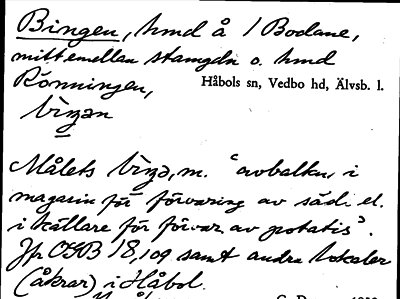 Bingen, hmd å 1 Bodane,
mitt emellan stamgdn o. hmd
Rönningen,
Håbols sn, Vedbo hd, Älvsb. l.
bìŋən
Målets bìŋə, m. "avbalkn. i
magasin för förvaring av säd; el.
i källare för förvar. av potatis".
Jfr OGB 18,109 samt andra lokaler
(åkrar) i Håbol.